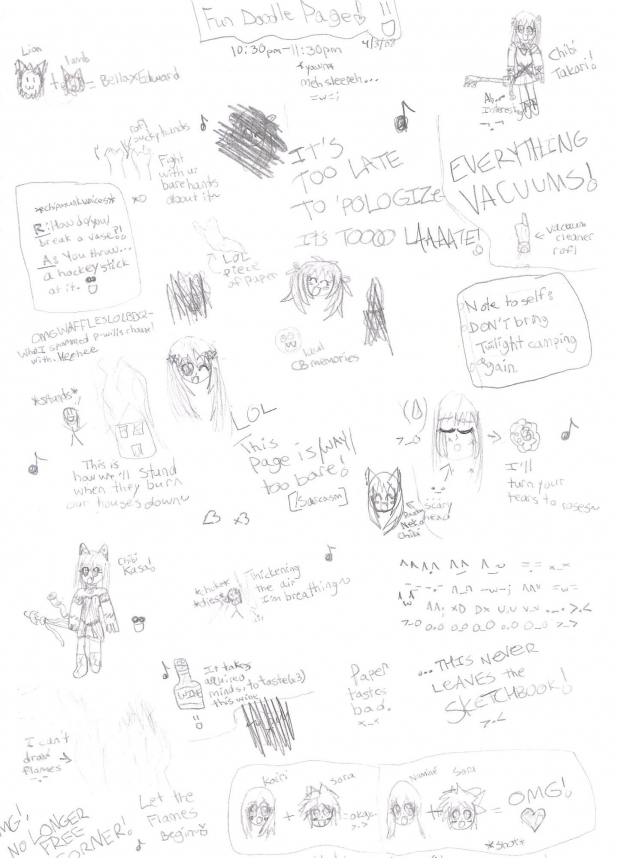 Fun Doodle Page!
10:30pm-11:30pm
4/3/08
meh sleepeh...
=w=;
Lion
lamb
+
= BellaxEdward
Chibi
Takari!
Ah...
Interest
rofl
Fight
with ur
bare hands
about it~
IT'S
TOO LATE
TO 'POLOGIZE~
It's TOOOO LAAAATE!
EVERYTHING
VACUUMS!
← vacuum
cleaner
rofl
*chipmunkvoices*
R: How do /you/
break a vase?!
A: You throw...
a hockey stick
at it.
xD
LOL
piece
of paper
Note to self:
DON'T bring
Twilight camping
again.
OMGWAFFLESLOLBBQ-
with. Heehee
CB memories
*stands*
LOL
This is
how we'll stand
when they burn
our houses down~
This
Page is /WAY/
too bare!
[/Sarcasm]
<3 x3
I'll
turn your
tears to roses~
scary
head
Neko
Chibi
Chibi
Kasa!
*choke*
*dies*
Thickening
the air
I'm breathing~
It takes
acquired
minds, to taste(x3)
this wine
WINE
Paper
tastes
bad.
x_x
...THIS NEVER
LEAVES the
SKETCHBOOK!
>.<
I can't
draw
flames →
-.-
Let the
Flames
Begin~
OMG!
NO LONGER
FREE
CORNER!
Kairi
Sora
+
=okay...
>.>
Naminé
Sora
+
= OMG!
*shot*